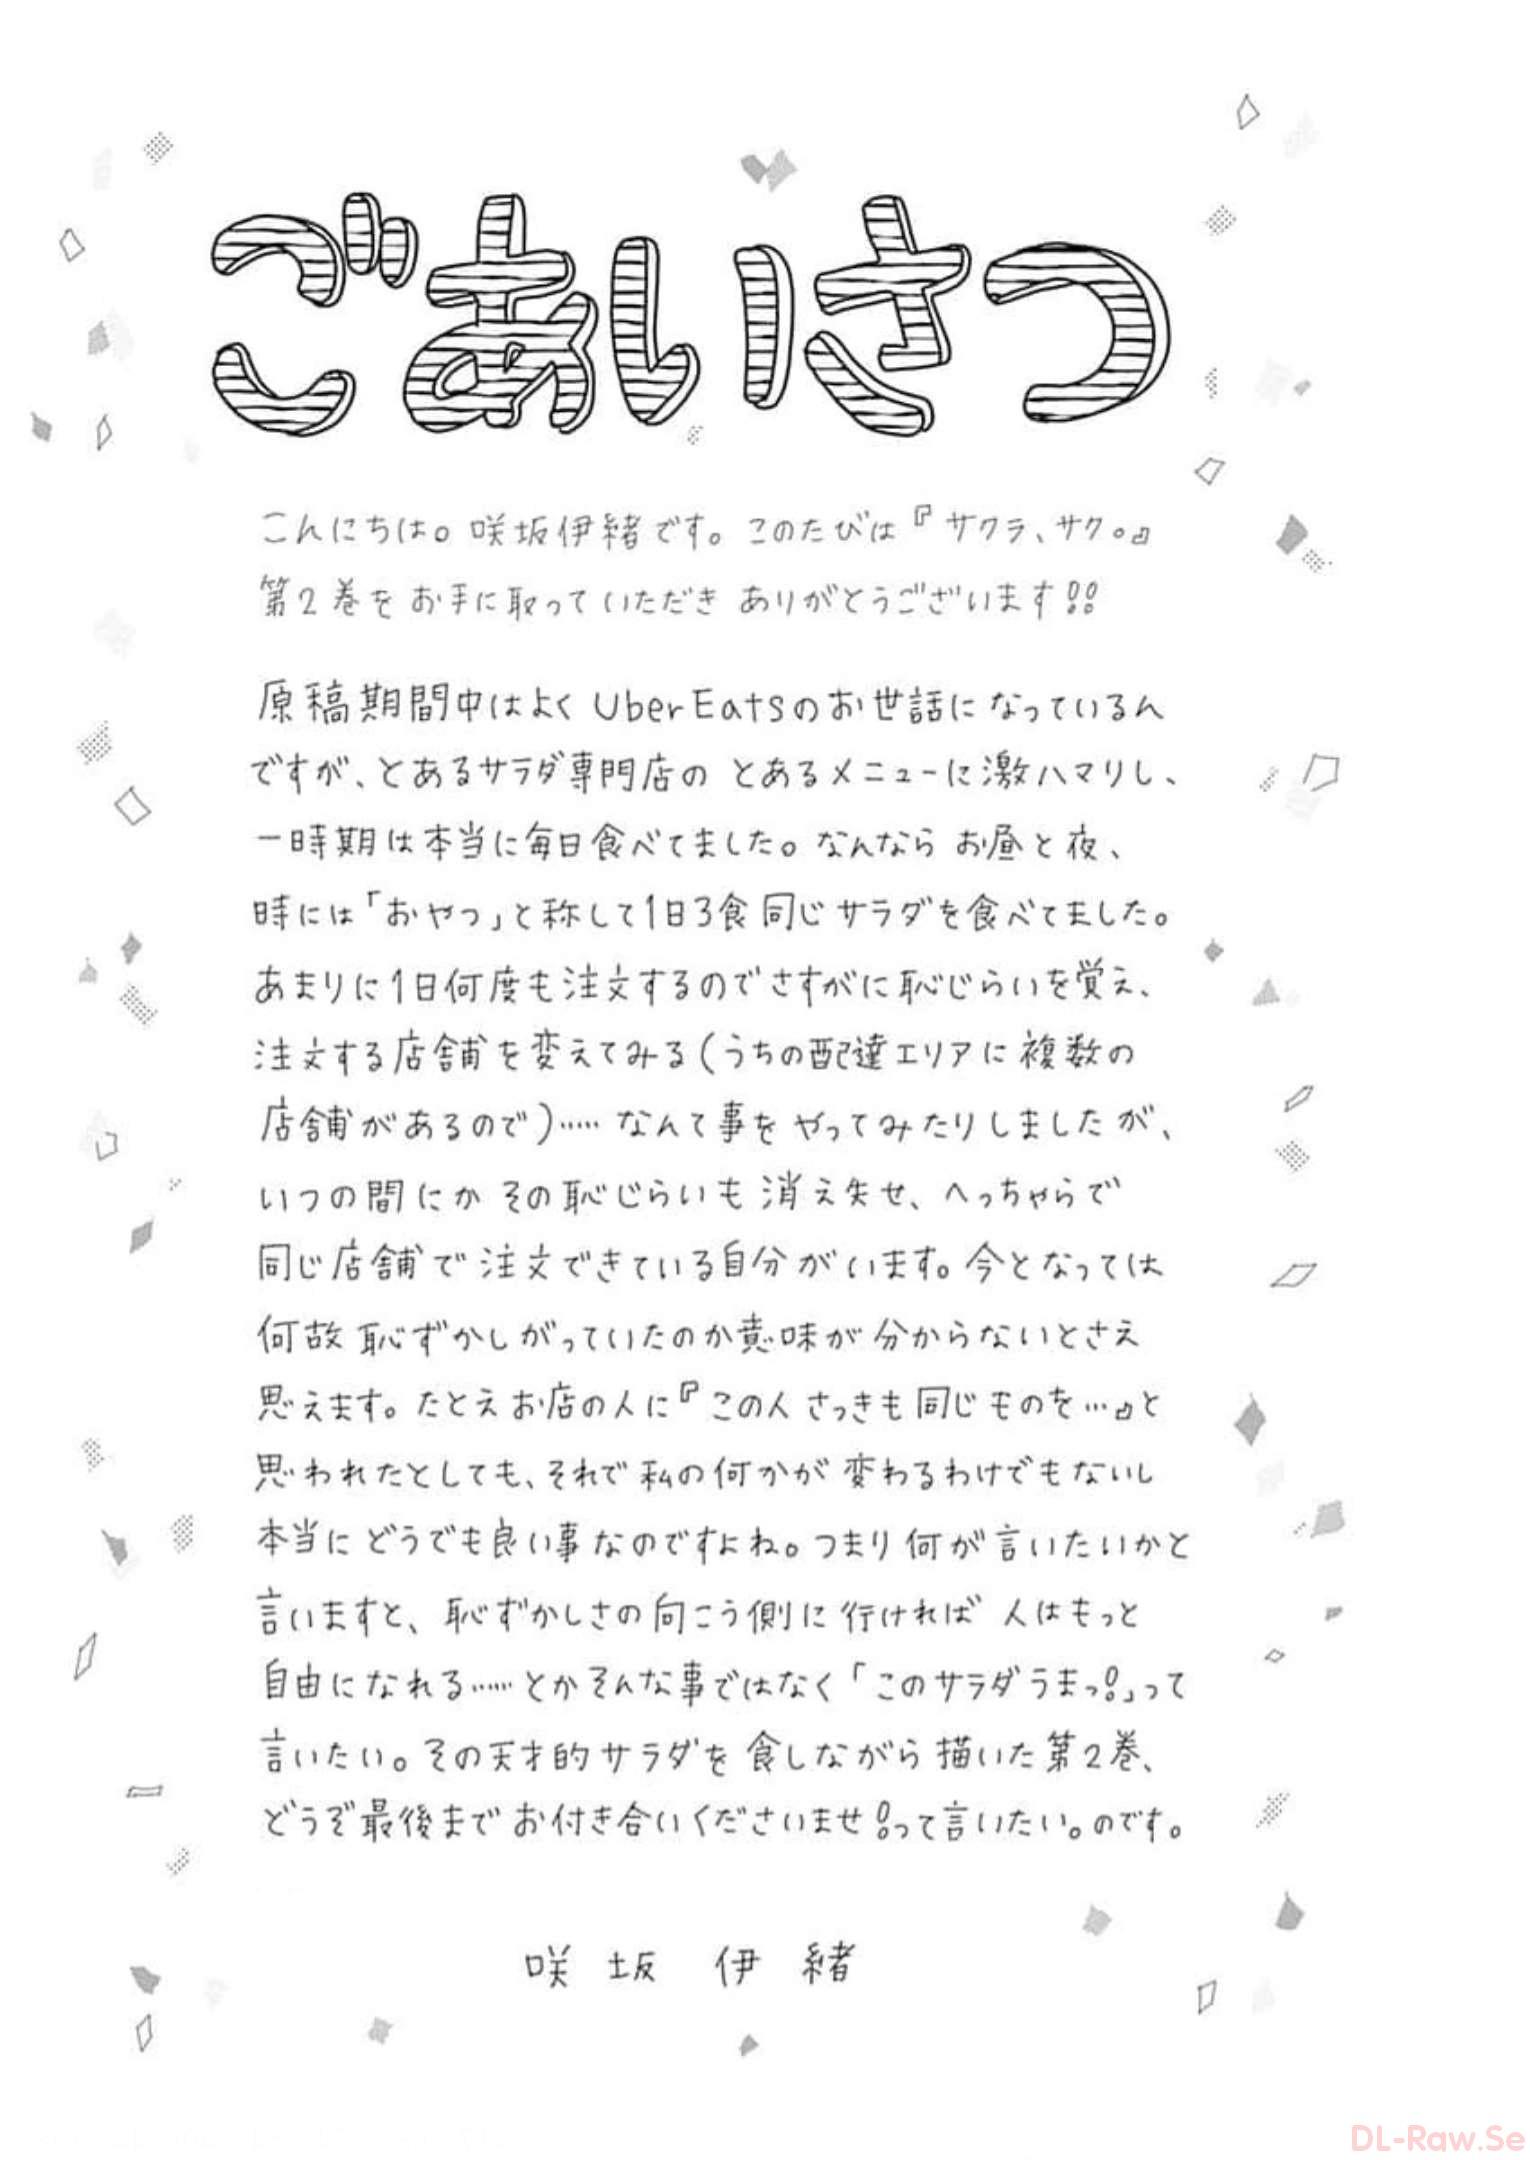 ごあいさつ
こんにちは。咲坂伊緒です。このたびは『サクラ、サク。』
第2巻をお手に取っていただきありがとうございます!!
原稿期間中はよくUber Eatsのお世話になっているん
ですが、とあるサラダ専門店のとあるメニューに激ハマりし、
一時期は本当に毎日食べてました。なんならお昼と夜、
時には「おやつ」と称して1日3食同じサラダを食べてました。
あまりに1日何度も注文するのでさすがに恥じらいを覚え、
注文する店舗を変えてみる(うちの配達エリアに複数の
店舗があるので)……なんて事をやってみたりしましたが、
いつの間にかその恥じらいも消え失せ、へっちゃらで
同じ店舗で注文できている自分がいます。今となっては
何故恥ずかしがっていたのか意味が分からないとさえ
思えます。たとえお店の人に『この人さっきも同じものを…』と
思われたとしても、それで私の何かが変わるわけでもないし
本当にどうでも良い事なのですよね。つまり何が言いたいかと
言いますと、恥ずかしさの向こう側に行ければ人はもっと
自由になれる……とかそんな事ではなく「このサラダうまっ!」って
言いたい。その天才的サラダを食しながら描いた第2巻、
どうぞ最後までお付き合いくださいませ!って言いたい。のです。
咲坂 伊緒
DL-Raw.Se